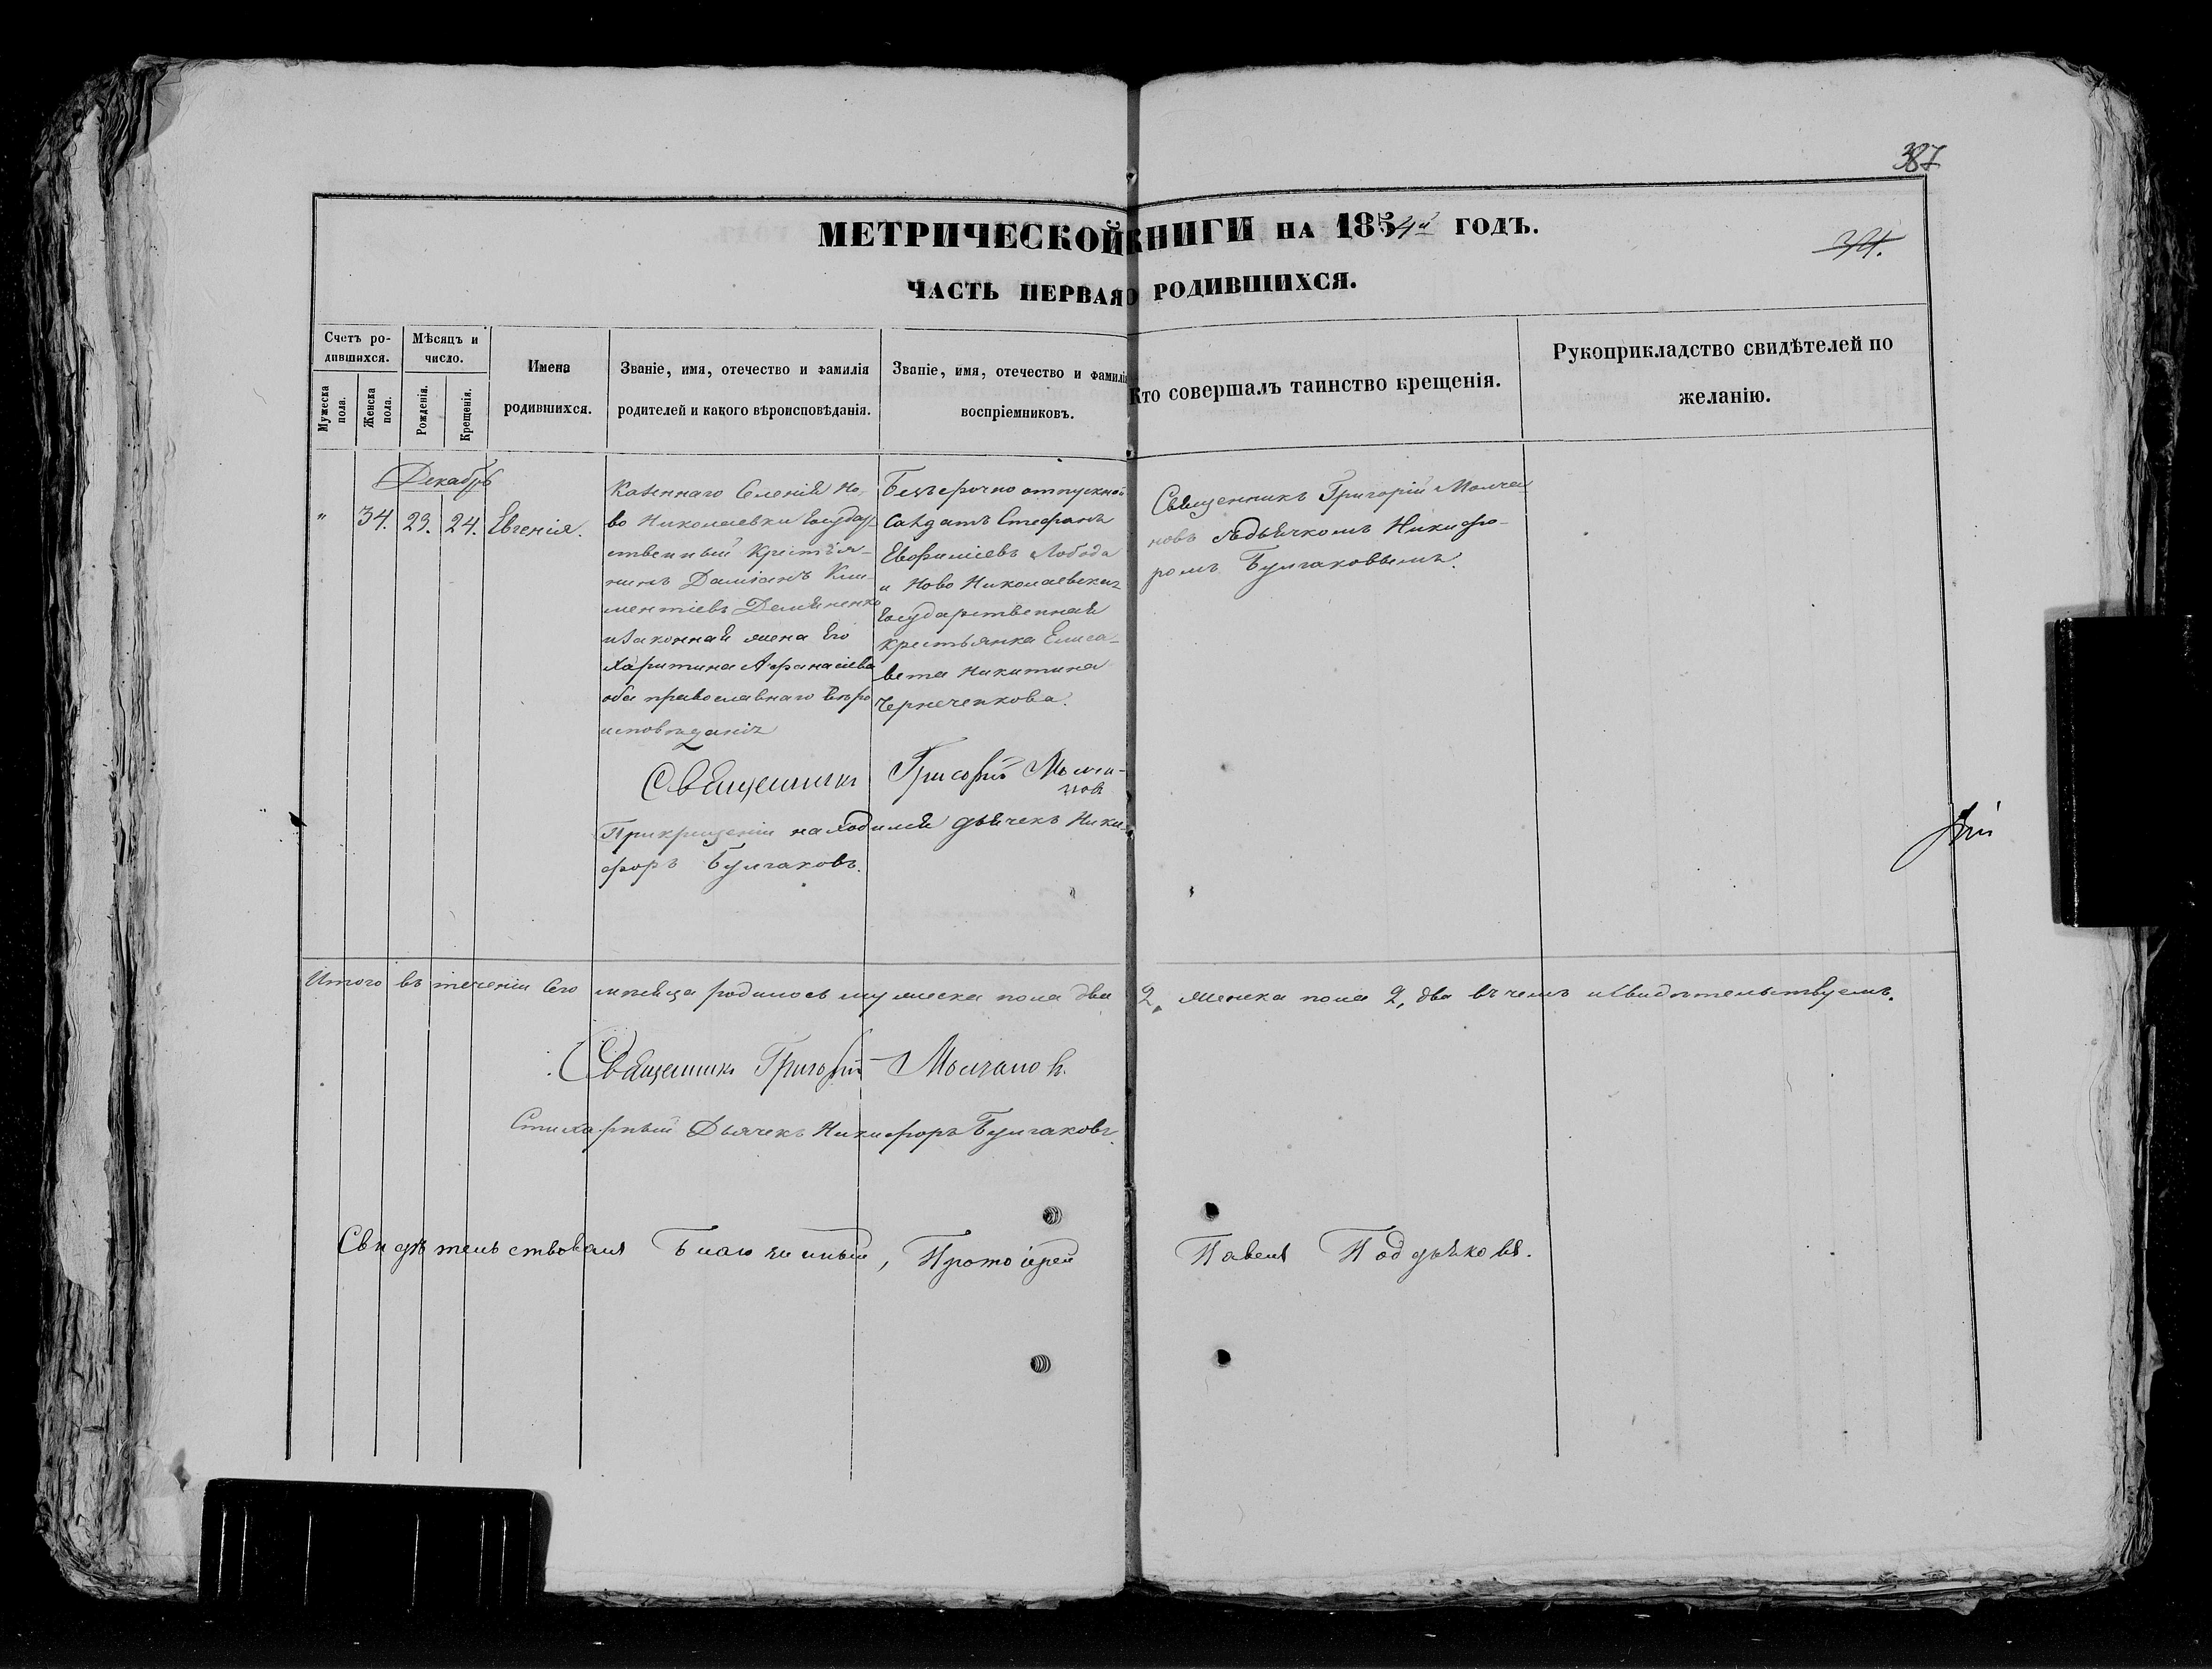 387
МЕТРИЧЕСКОЙ КНИГИ НА 1854й ГОДЪ.
34.
ЧАСТЬ ПЕРВАЯ О РОДИВШИХСЯ.
Счетъ ро-
дившихся.
Мѣсяцъ и
число.
Мужеска
пола.
Женска
пола.
Рожденія.
Крещенія.
Имена
родившихся.
Званіе, имя, отечество и фамилія
родителей и какого вѣроисповѣданія.
Званіе, имя, отечество и фамилія
воспріемниковъ.
Кто совершалъ таинство крещенія.
Рукоприкладство свидѣтелей по
желанію.
Декабрь
" 34. 23. 24. Евгенія.
Казеннаго Селенія Но-
во Николаевки Государ-
ственный Крестья-
нинъ Даміанъ Кли-
ментіевъ Демяненко
и законная жена Его
Харитина Афанасіева
оба православнаго вѣро
исповѣданія
Безсрочно отпускной
Салдатъ Стефанъ
Евфиміевъ Лобода
и Ново Николаевская
Государственная
крестьянка Елиса-
вета Никитина
Чернеченкова.
Священникъ Григорій Молча-
новъ съ дьячкомъ Никифо-
ромъ Булгаковымъ.
Священникъ Григорій Молча-
новъ
При крещеніи находился дьячекъ Ники-
форъ Булгаковъ.
Итого въ теченіи Сего мѣсяца родилось мужеска пола два 2, женска пола 2, два въ чемъ и свидѣтельствуемъ.
Священникъ Григорій Молчановъ.
Стихарный Дьячекъ Никифоръ Булгаковъ.
Свидѣтельствовалъ Благочинный, Протоіерей Павелъ Поддьяковъ.